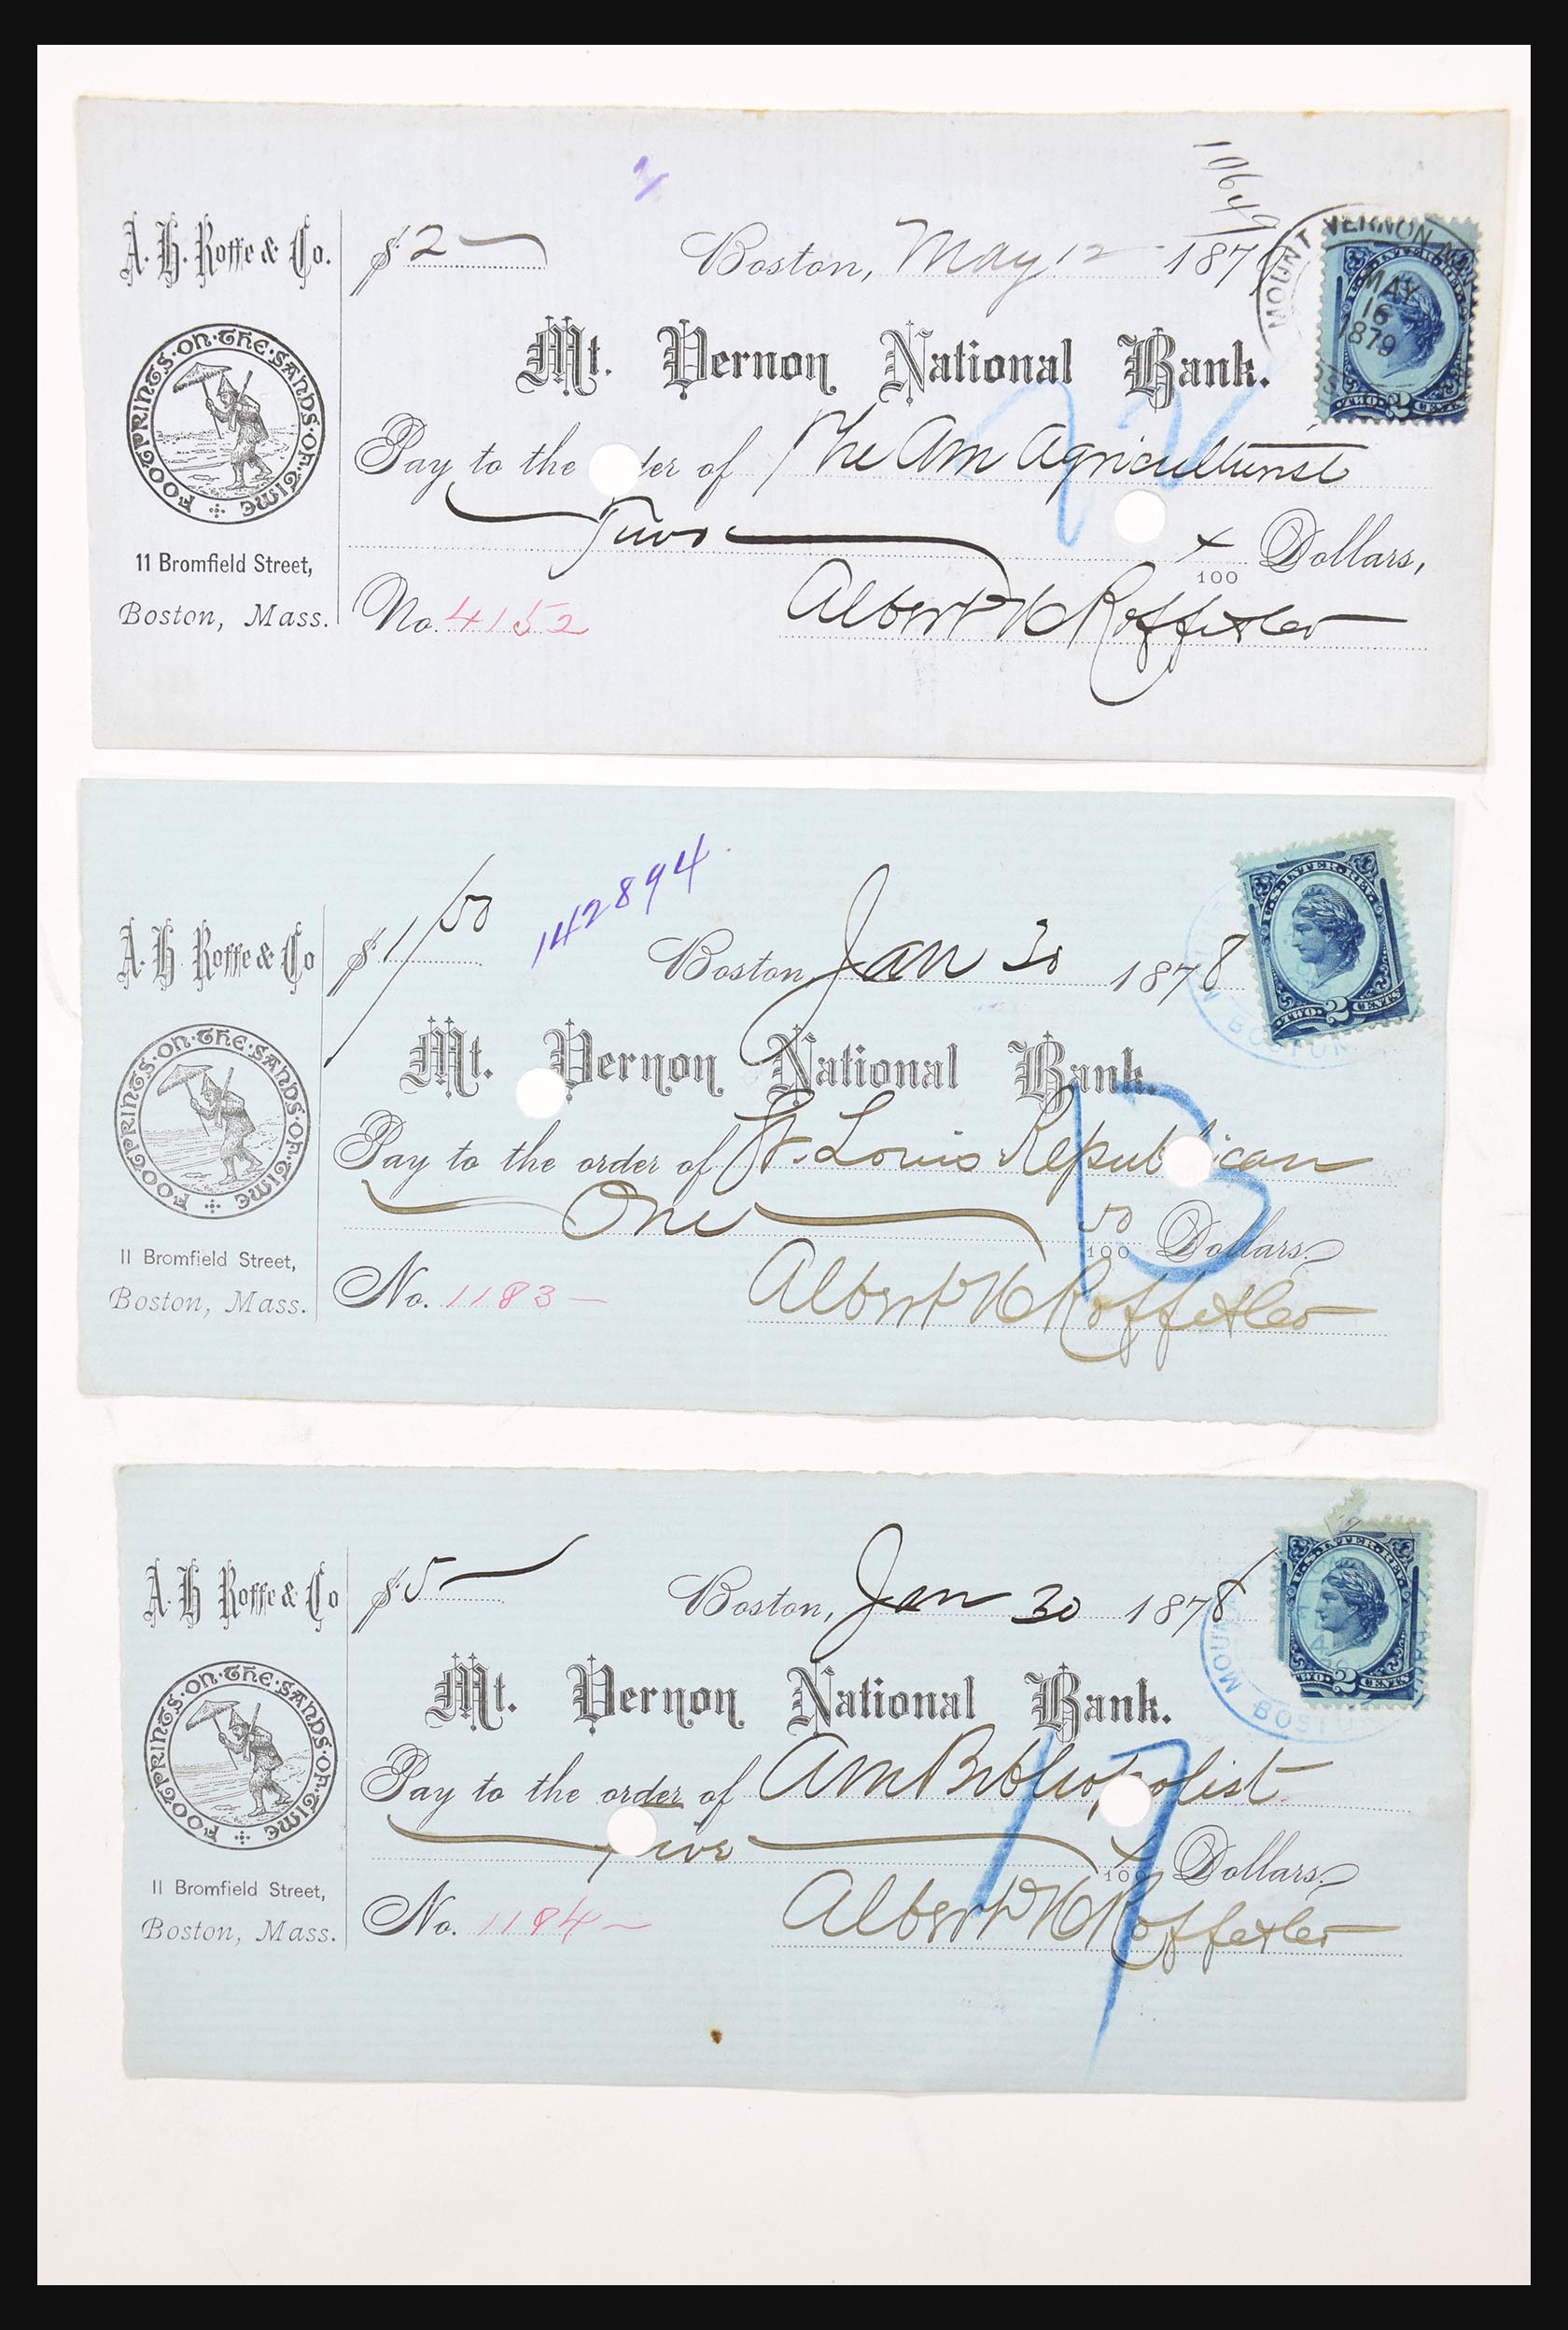 10649
A. H. Roffe & Co.
$ 2
Boston, May 12 1879
MOUNT VERNON
MAY
16
1879
TWO 2 CENTS
FOOTPRINTS · ON · THE · SANDS · OF · TIME
Mt. Vernon National Bank.
Pay to the der of The Am Agriculturist
Two x/100 Dollars,
11 Bromfield Street,
Boston, Mass.
No. 4152
Albert H Roffe & Co
142894
A. H. Roffe & Co
$ 1 50
Boston, Jan 30 1878
U.S. INTER. REV.
TWO 2 CENTS
BOSTON
FOOTPRINTS · ON · THE · SANDS · OF · TIME
Mt. Vernon National Bank.
Pay to the order of St. Louis Republican
One 50/100 Dollars
13
11 Bromfield Street,
Boston, Mass.
No. 1183
Albert H Roffe & Co
A H Roffe & Co
$ 5
Boston, Jan 30 1878
U.S. INTER. REV.
TWO 2 CENTS
MOUN
BOSTO
FOOTPRINTS · ON · THE · SANDS · OF · TIME
Mt. Vernon National Bank.
Pay to the order of Am Bibliopolist
Five x/100 Dollars
17
11 Bromfield Street,
Boston, Mass.
No. 1184
Albert H Roffe & Co